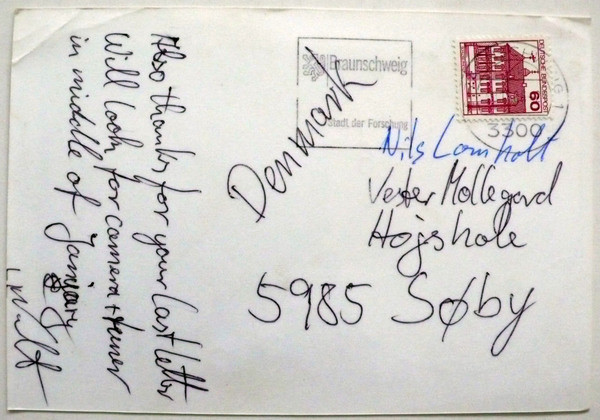 Also thanks for your last letter
Will look for camera +
in middle of January
Braunschweig
Stadt der Forschung
DEUTSCHE BUNDESPOST
60
1
3300
Denmark
Nils Lomholt
Vester Mollegard
Højshole
5985 Søby